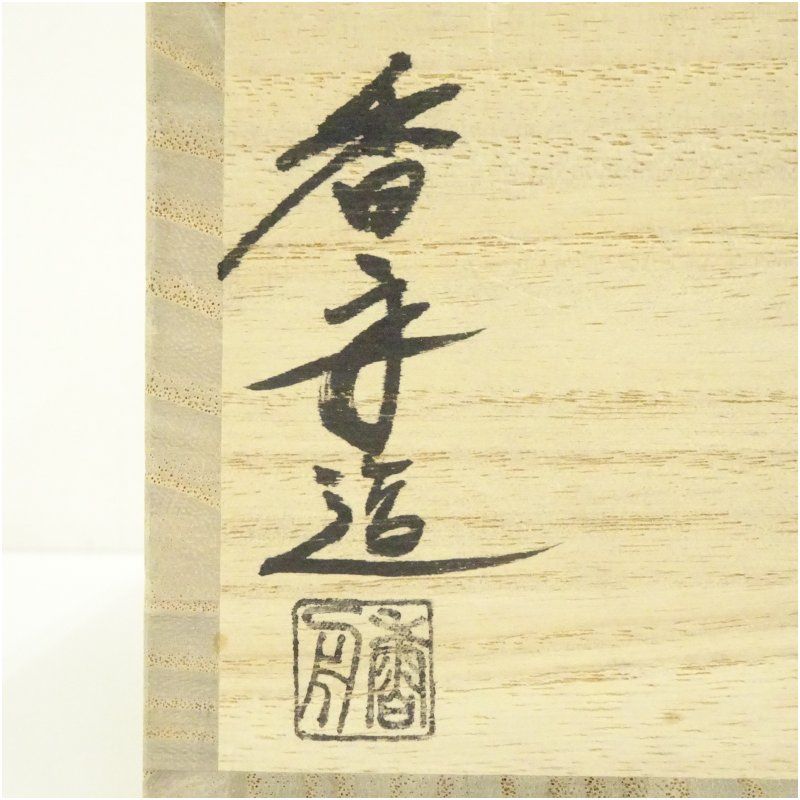 香舟造
香舟